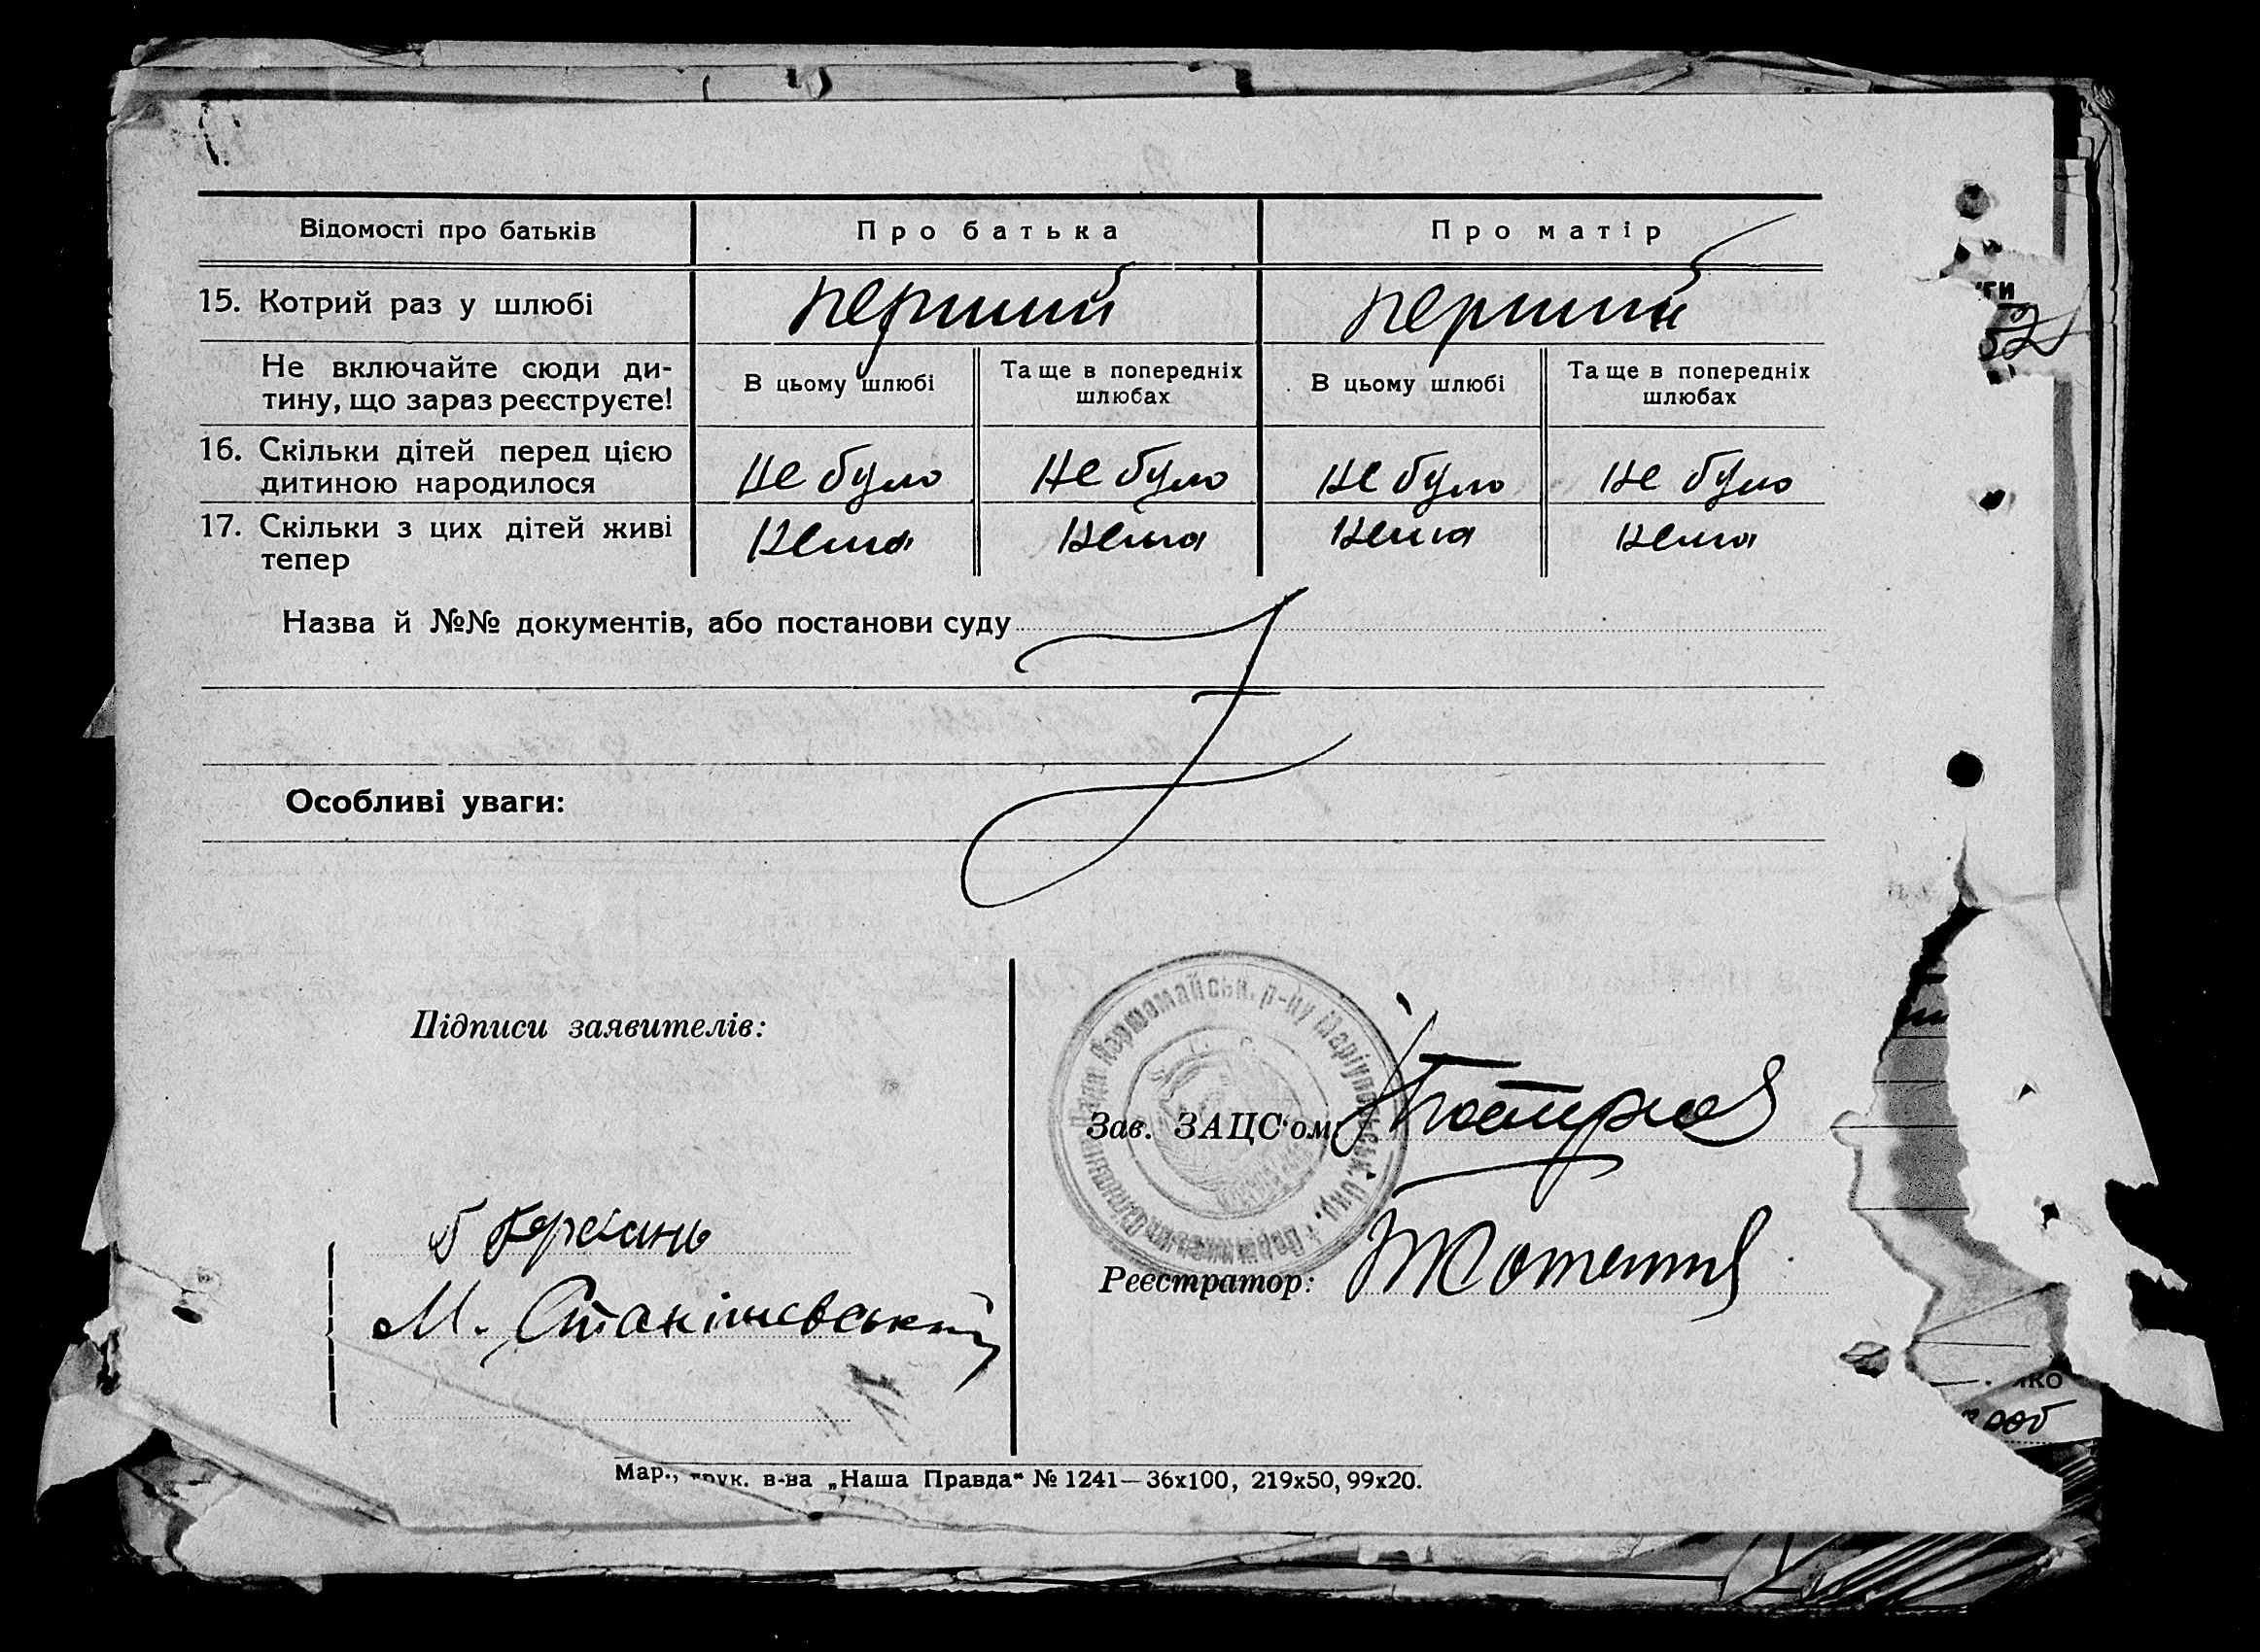 Відомості про батьків Про батька Про матір
15. Котрий раз у шлюбі перший перший
Не включайте сюди ди-
тину, що зараз реєструєте!
В цьому шлюбі Та ще в попередніх шлюбах В цьому шлюбі Та ще в попередніх шлюбах
16. Скільки дітей перед цією
дитиною народилося не було не було не було не було
17. Скільки з цих дітей живі
тепер нема нема нема нема
Назва й №№ документів, або постанови суду
Особливі уваги:
Підписи заявителів:
Зав. ЗАЦС'ом:
М. Станішевський
Реєстратор:
Мар., друк. в-ва „Наша Правда“ № 1241—36x100, 219x50, 99x20.